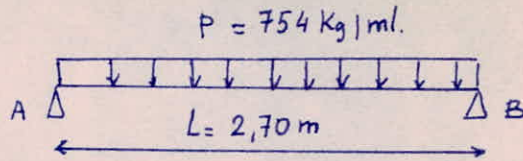 P = 754 Kg/ml.
A B
L = 2,70 m